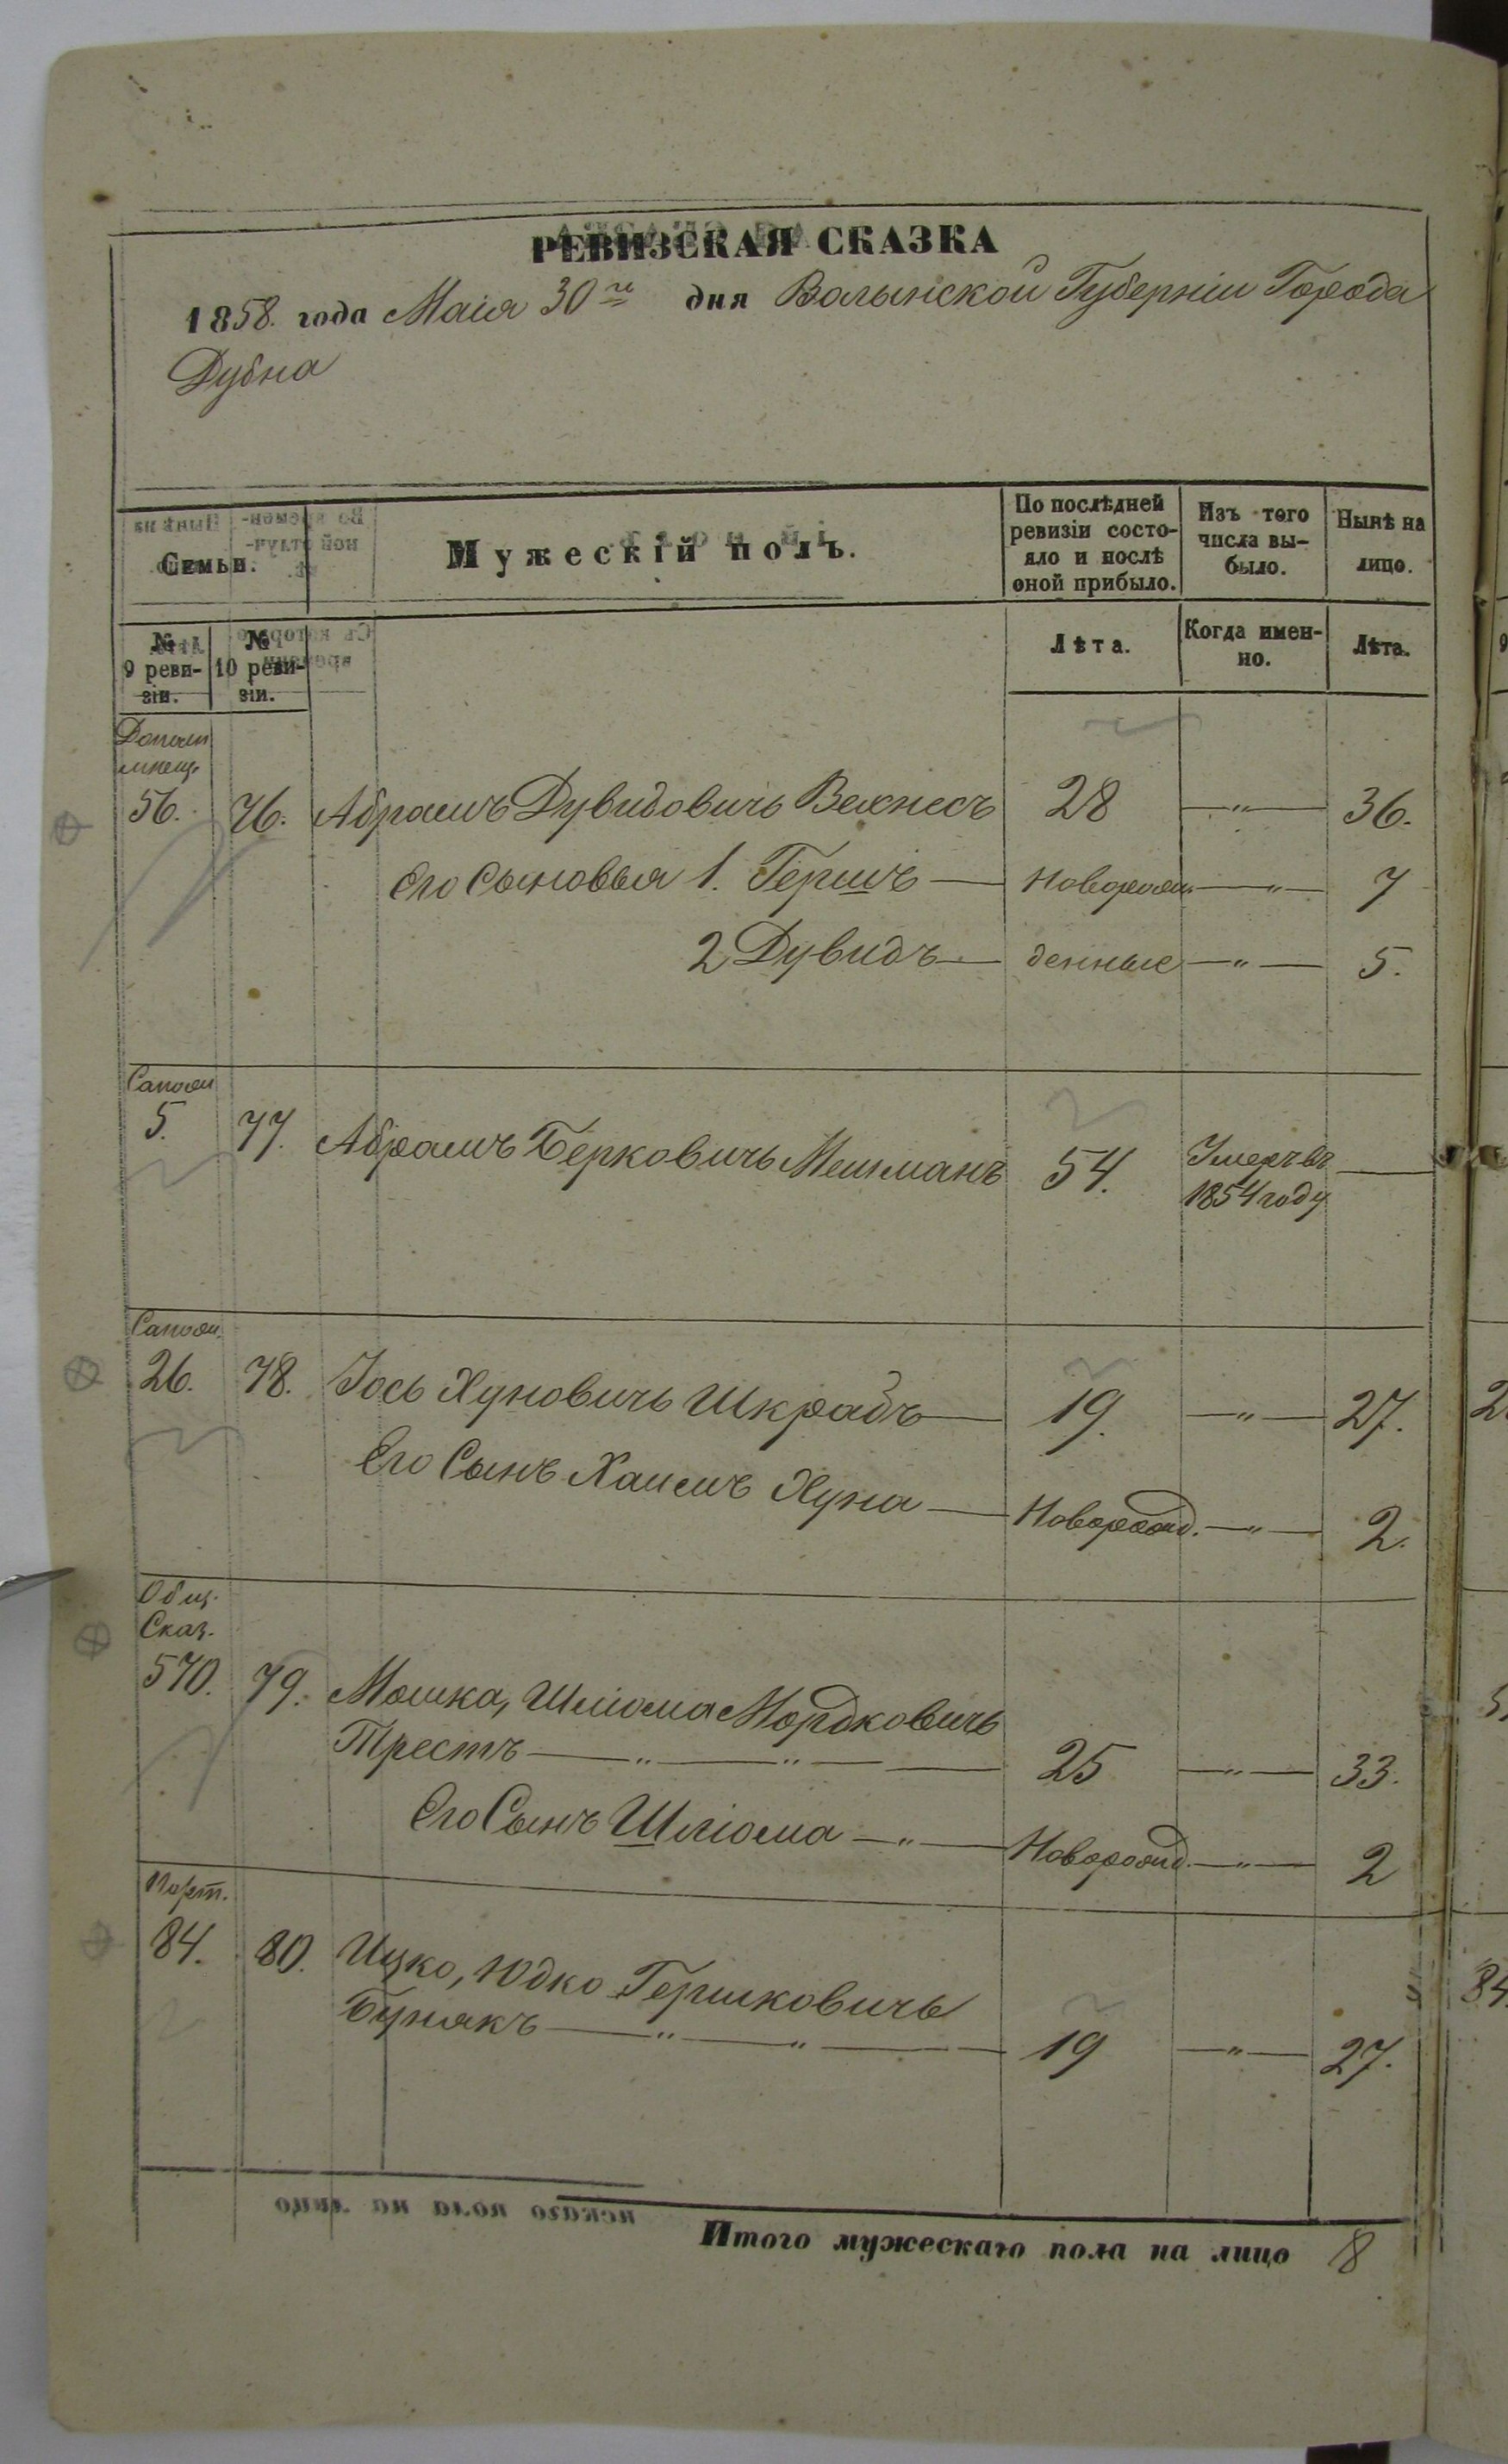 РЕВИЗСКАЯ СКАЗКА
1858. года Маія 30го дня Волынской Губерніи Города
Дубна
Семьи.
Мужескій полъ.
По послѣдней ревизіи состо-яло и послѣ оной прибыло.
Изъ того числа вы-было.
Нынѣ на лицо.
№ 9 реви-зіи.
№ 10 реви-зіи.
Лѣта.
Когда имен-но.
Лѣта.
56. 76. Абрамъ Дувидовичь Вехнесъ 28 —"— 36.
Его Сыновья 1. Гершъ — Новорож —"— 7
2 Дувидъ — денные —"— 5.
Сапож
5. 77. Абрамъ Берковичь Мешманъ 54. Умеръ въ —
1854 году
Сапож.
26. 78. Іось Хуновичь Шкрабъ — 19. —"— 27.
Его Сынъ Хаимъ Хуна — Новорожд. —"— 2.
Общ.
Сказ.
570. 79. Мошка, Шліома Мордковичь
Трестъ —"—"— 25 —"— 33.
Его Сынъ Шліома —"— Новорожд. —"— 2
Порт.
84. 80. Ицко, Юдко Гершковичь
Бунякъ —"—"— 19 —"— 27.
Итого мужескаго пола на лицо 8